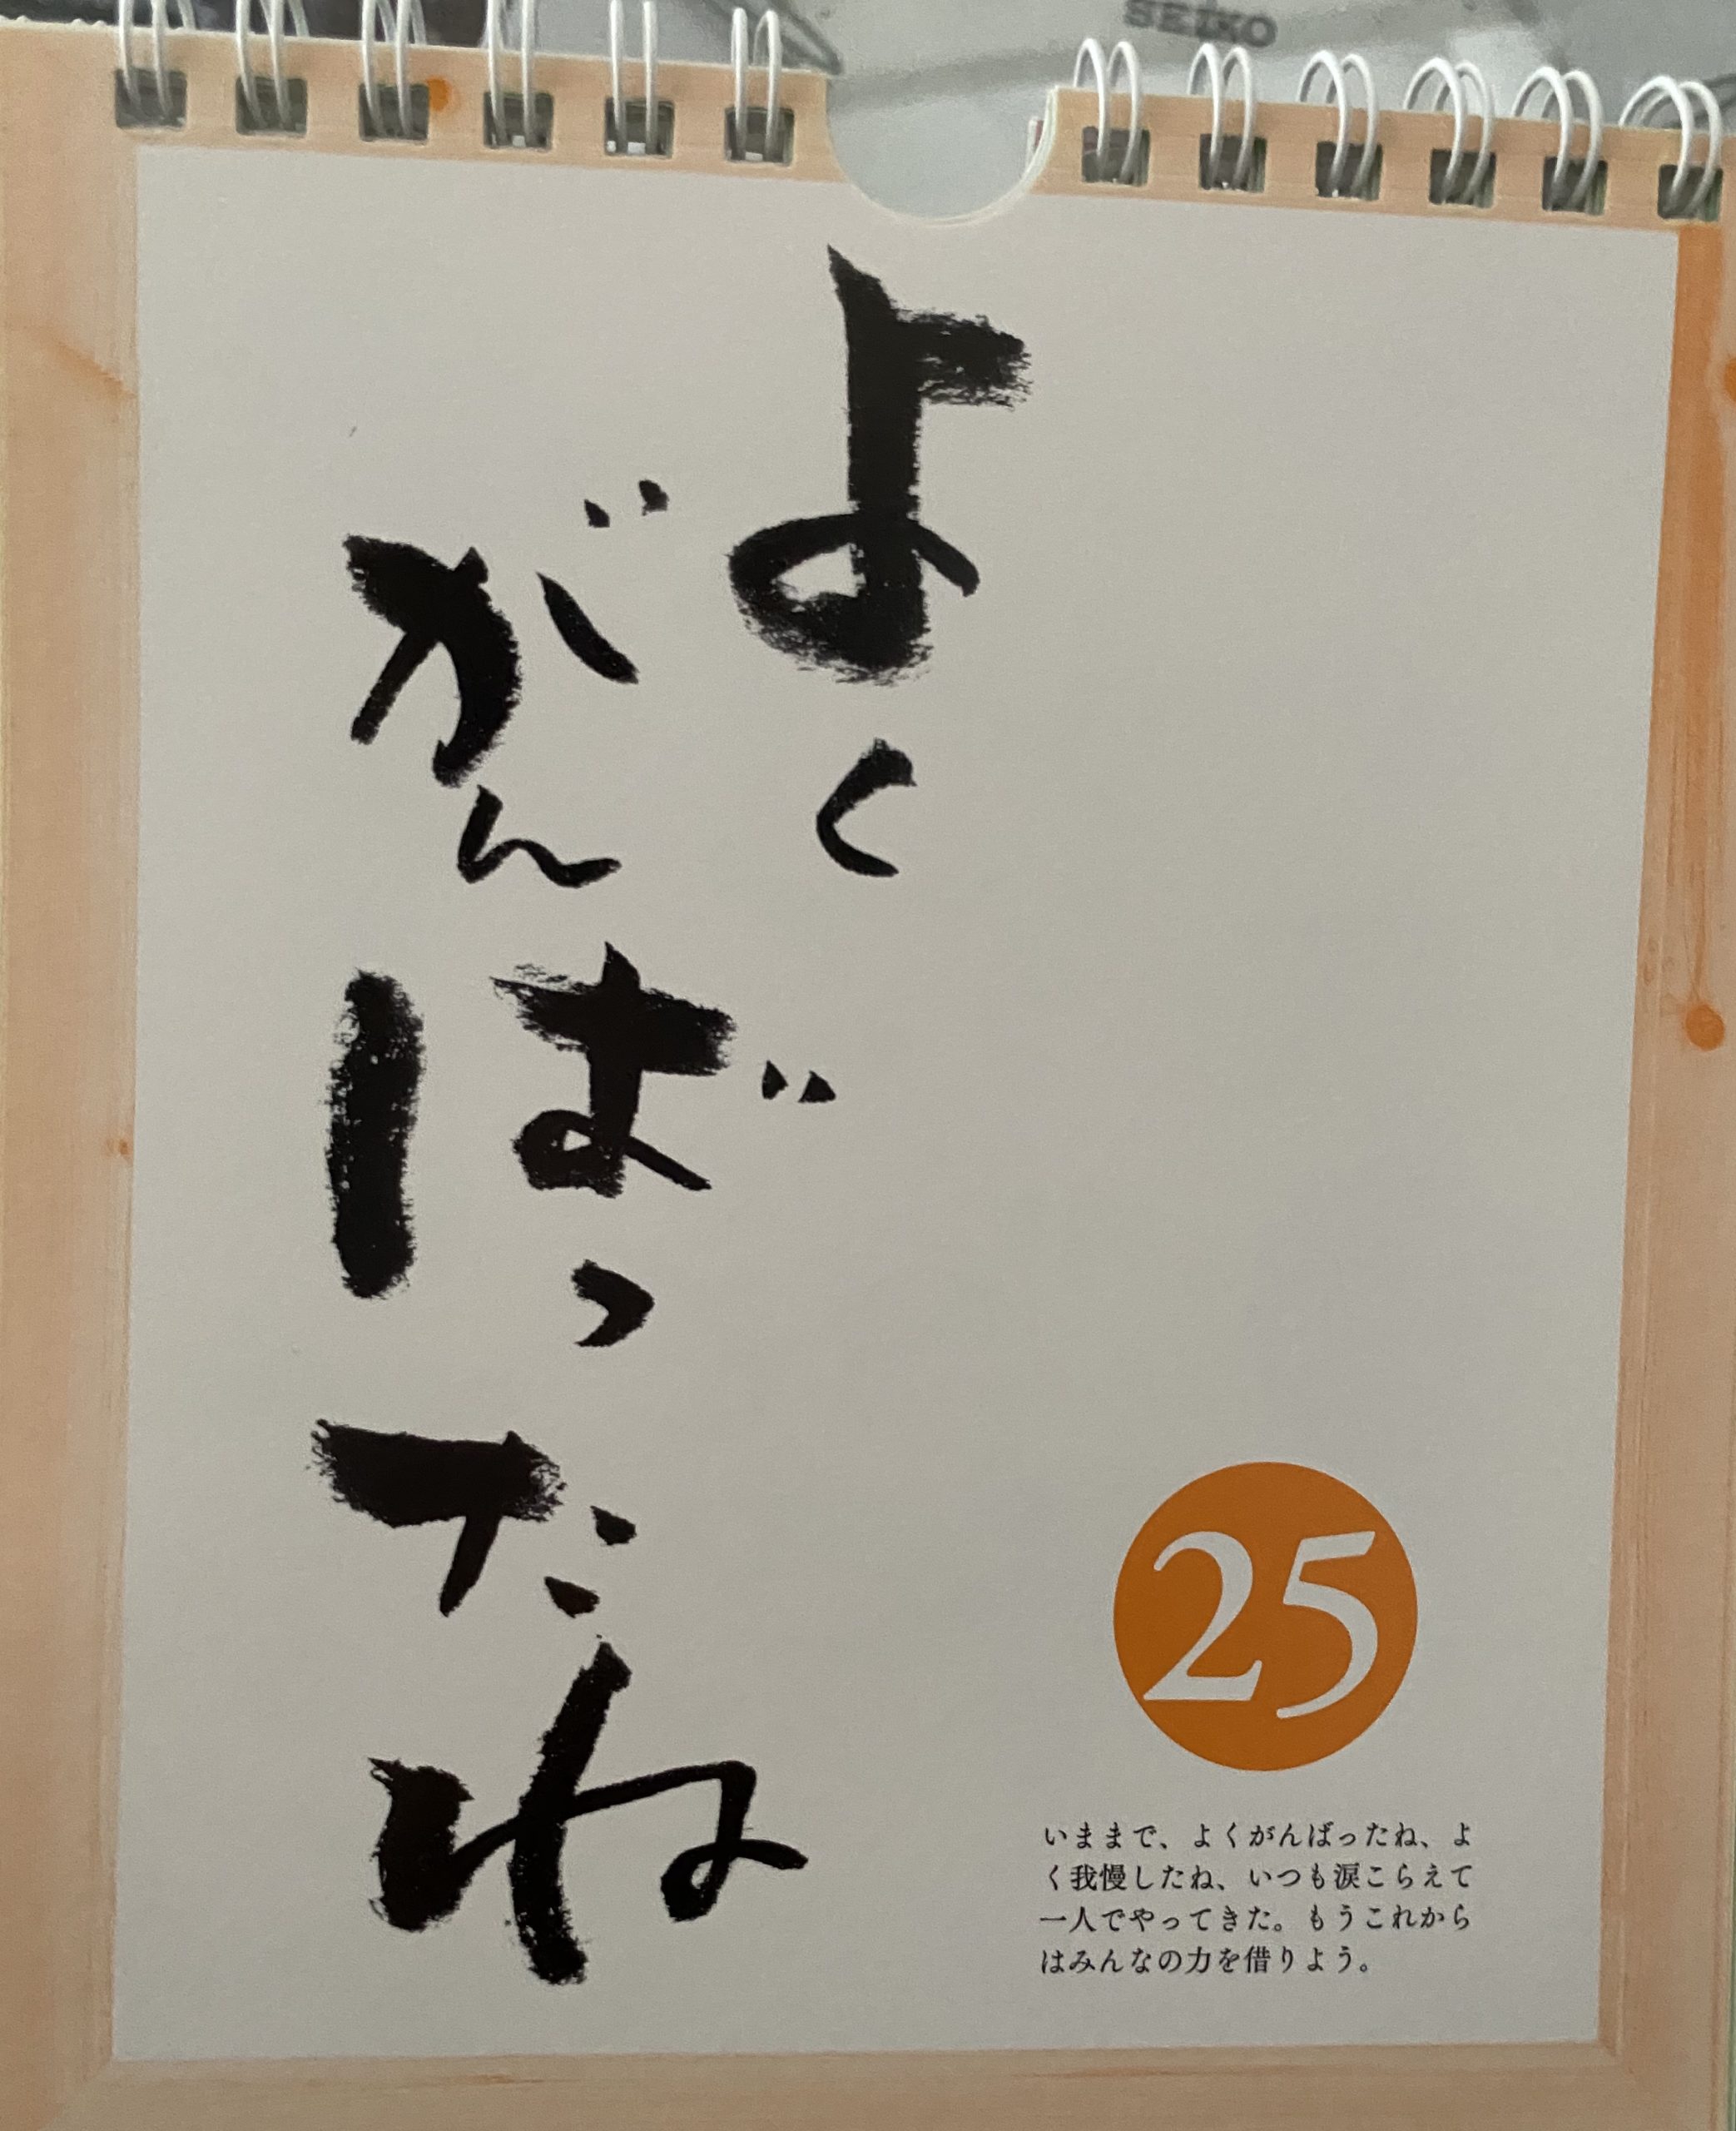 SEIKO
よく
がんばったね
25
いままで、よくがんばったね、よ
く我慢したね、いつも涙こらえて
一人でやってきた。もうこれから
はみんなの力を借りよう。